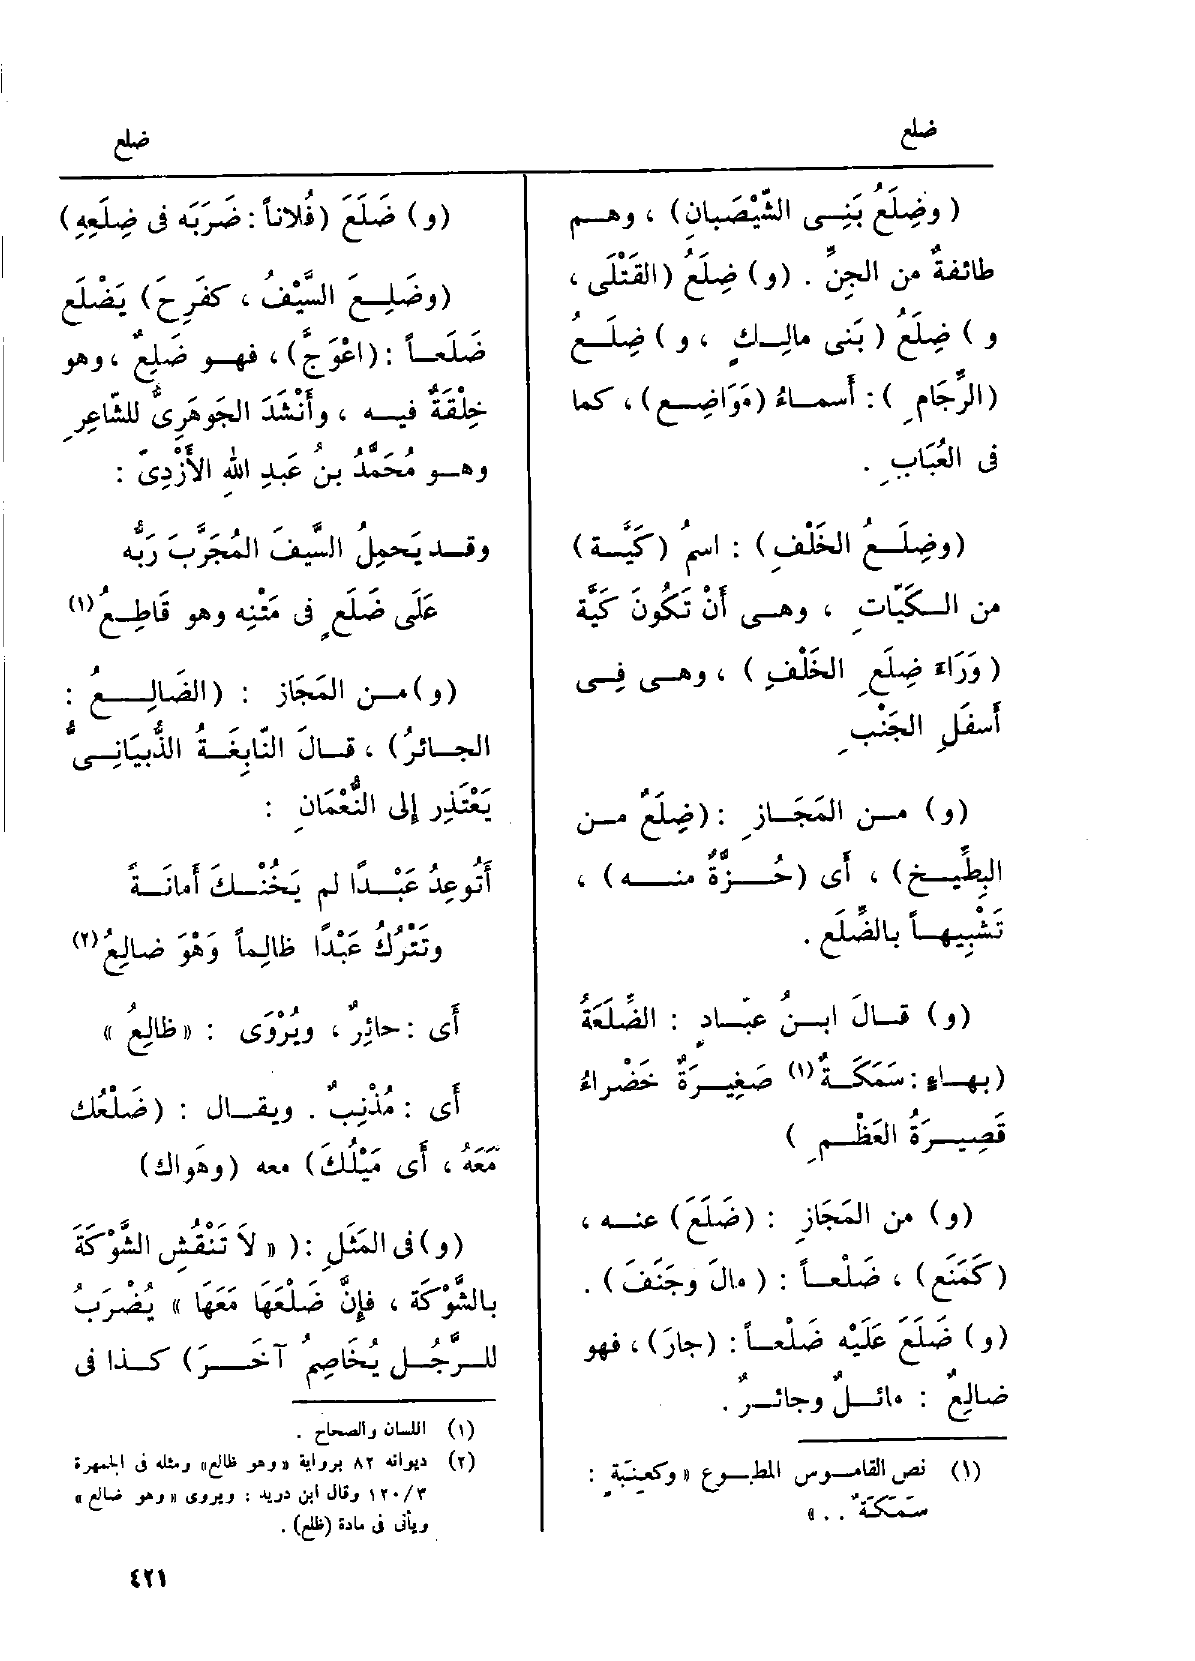 ضلع
ضلع
(وضِلَعُ بَنِى الشَّيْصَبانِ) ، وهم
طائفةٌ من الجِنِّ . (و) ضِلَعُ (القَتْلَى ،
و) ضِلَعُ (بَنى مالِكٍ ، و) ضِلَعُ
(الرِّجَامِ) : أَسماءُ (مَوَاضِع) ، كما
فى العُبَابِ .
(وضِلَعُ الخَلْفِ) : اسمُ (كَيَّة)
من الكَيّاتِ ، وهى أَنْ تَكُونَ كَيَّة
(وَرَاءَ ضِلَعِ الخَلْفِ) ، وهى فِى
أَسفَلِ الجَنْبِ
(و) من المَجَازِ : (ضِلَعٌ من
البِطِّيخِ) ، أَى (حُزَّةٌ منه) ،
تَشْبِيهاً بالضِّلَع .
(و) قالَ ابنُ عبّادٍ : الضِّلَعَةُ
(بهاءٍ : سَمَكَةٌ (١) صَغِيرَةٌ خَضْراءُ
قَصِيرَةُ العَظْمِ)
(و) من المَجَازِ : (ضَلَعَ) عنه ،
(كَمَنَع) ، ضَلْعاً : (مالَ وجَنَفَ) .
(و) ضَلَعَ عَلَيْه ضَلْعاً : (جارَ) ، فهو
ضالِعٌ : مائلٌ وجائرٌ .
(١) نص القاموس المطبوع «وكعِنَبَةٍ :
سَمَكَةٌ . . »
(و) ضَلَعَ (فُلاناً : ضَرَبَه فى ضِلَعِهِ)
(وضَلِعَ السَّيْفُ ، كفَرِحَ) يَضْلَع
ضَلَعاً : (اعْوَجَّ) ، فهو ضَلِعٌ ، وهو
خِلْقَةٌ فيه ، وأَنْشَدَ الجَوهَرِىُّ للشّاعِرِ
وهو مُحَمَّدُ بنُ عَبدِ اللهِ الأَزْدِىّ :
وقد يَحمِلُ السَّيفَ المُجَرَّبَ رَبُّه
عَلَى ضَلَعٍ فى مَتْنِه وهو قَاطِعُ (١)
(و) من المَجَاز : (الضَالِعُ :
الجائرُ) ، قالَ النّابِغَةُ الذُّبيَانِىُّ
يَعْتَذِر إِلى النُّعْمَانِ :
أَتُوعِدُ عَبْدًا لم يَخُنْكَ أَمانَةً
وتَتْرُكُ عَبْدًا ظالِماً وَهْوَ ضالِعُ (٢)
أَى : حائِرٌ ، ويُرْوَى : «ظالِعُ»
أَى : مُذْنِبٌ . ويقال : (ضَلْعُك
مَعَهُ ، أَى مَيْلُكَ) معه (وهَواك)
(و) فى المَثَلِ : ( «لاَ تَنْقُشِ الشَّوْكَةَ
بالشَّوْكَة ، فإِنَّ ضَلْعَهَا مَعَهَا» يُضْرَبُ
للرَّجُلِ يُخَاصِمُ آخَرَ) كذا فى
(١) اللسان والصحاح .
(٢) ديوانه ٨٢ برواية «وهو ظالع» ومثله فى الجمهرة
٣/١٢٠ وقال ابن دريد : ويروى «وهو ضالع»
ويأتى فى مادة (ظلع) .
٤٢١